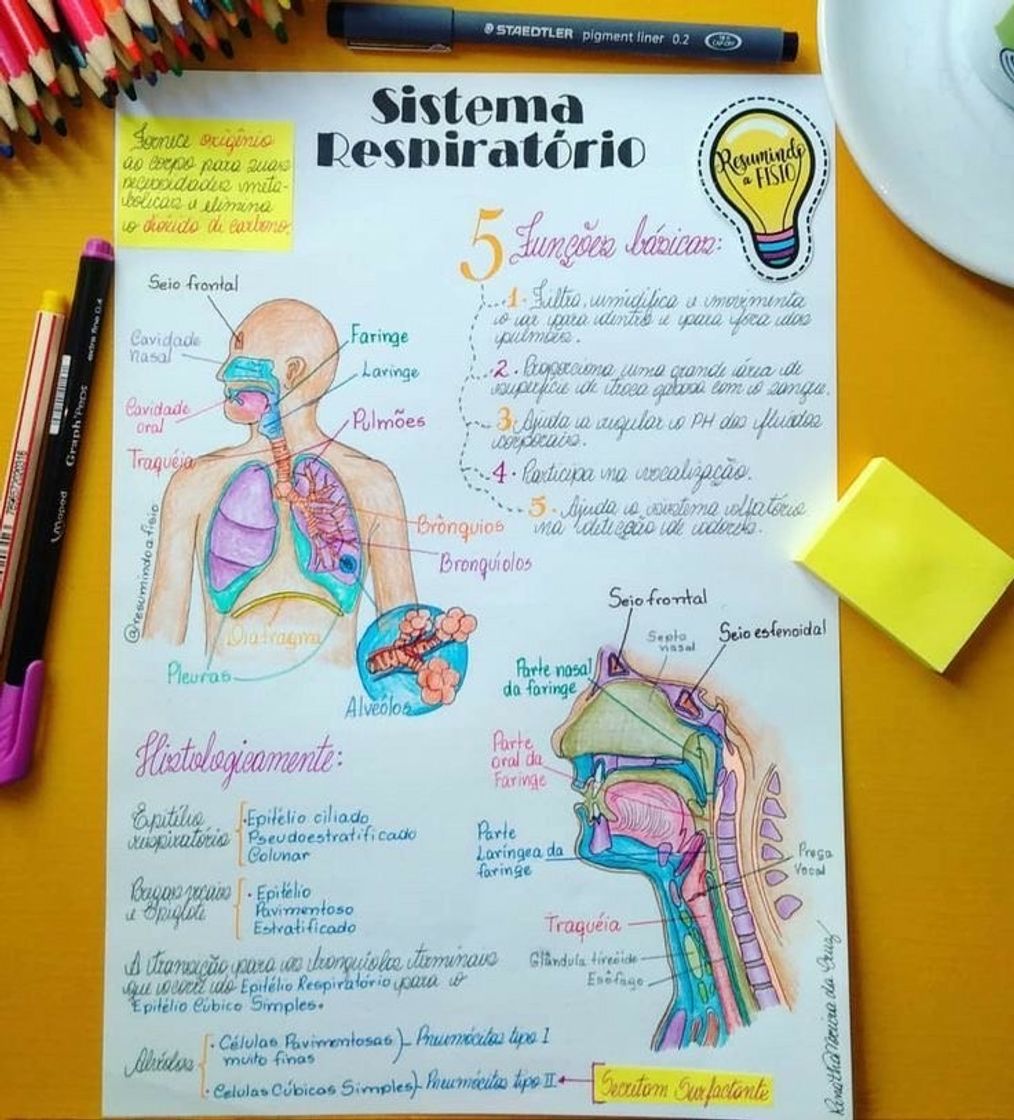 STAEDTLER pigment liner 0.2
Sistema
Respiratório
Resumindo
a FISIO
Fornece oxigênio
ao corpo para suas
necessidades meta-
bólicas e elimina
o dióxido de carbono.
5 Funções básicas:
1. Filtra, umidifica e movimenta
o ar para dentro e para fora dos
pulmões.
2. Proporciona uma grande área de
superfície de troca gasosa com o sangue.
3. Ajuda a regular o PH dos fluidos
corporais.
4. Participa na vocalização.
5. Ajuda o sistema olfatório
na detecção de odores.
Seio frontal
Cavidade
nasal
Faringe
Laringe
Cavidade
oral
Pulmões
Traquéia
Brônquios
Bronquíolos
Diafragma
Pleuras
Alvéolos
@resumindoafisio
Maped Graph'Peps extra fine 0.4
Seio frontal
Septo
nasal
Seio esfenoidal
Parte nasal
da faringe
Parte
oral da
Faringe
Parte
Laríngea da
faringe
Prega
Vocal
Traquéia
Glândula tireóide
Esôfago
Histologicamente:
Epitélio
respiratório
• Epitélio ciliado
Pseudoestratificado
Colunar
e Epiglote
• Epitélio
Pavimentoso
Estratificado
A transição para os bronquíolos terminais
que ocorre do Epitélio Respiratório para o
Epitélio Cúbico Simples.
Alvéolos
• Células Pavimentosas) - Pneumócitos tipo I
muito finas
• Celulas Cúbicas Simples) - Pneumócitos tipo II
Secretam Surfactante
da Cruz